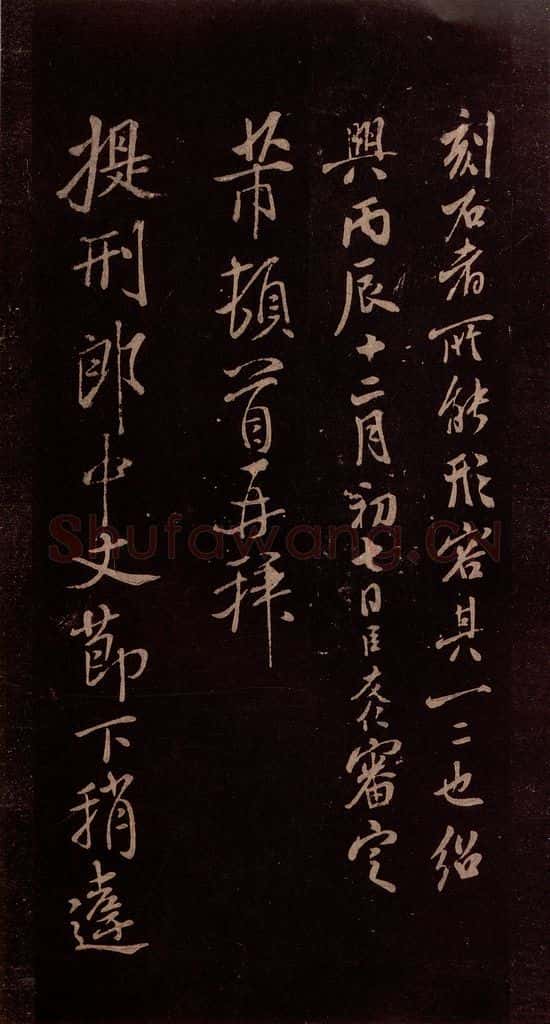 刻石者所能形容其一二也紹
興丙辰十二月初七日臣友仁審定
芾頓首再拜
提刑郎中文節下稍違
Shufawang.CN